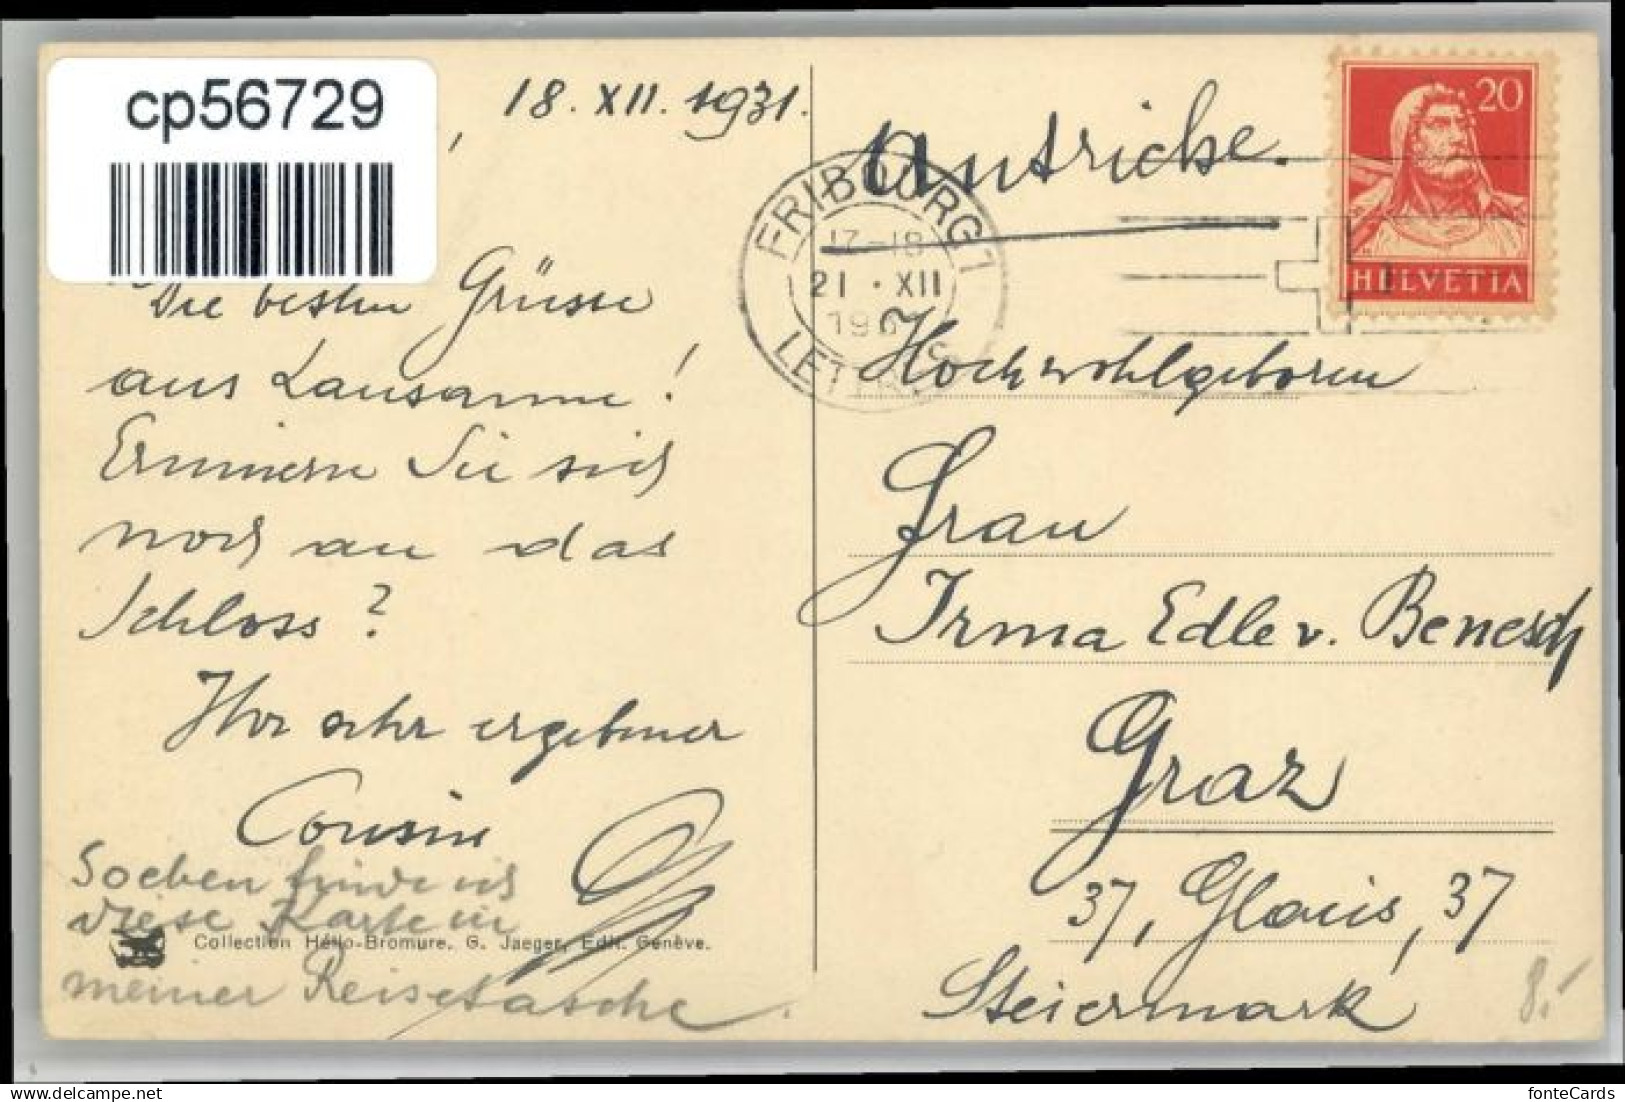 cp56729
, 18. XII. 1931.
Die besten Grüsse
aus Lausanne!
Erinnern Sie sich
noch an das
Schloss?
Ihr sehr ergebener
Cousin
Soeben finde ich
diese Karte in
meiner Reisetasche.
Collection Hélio-Bromure. G. Jaeger, Edit. Genève.
FRIBOURG 1
17-18
21 · XII
LETTRES
20
HELVETIA
Autriche.
Hochwohlgeboren
Frau
Irma Edle v. Benesch
Graz
37, Glacis, 37
Steiermark
8.
fonteCards